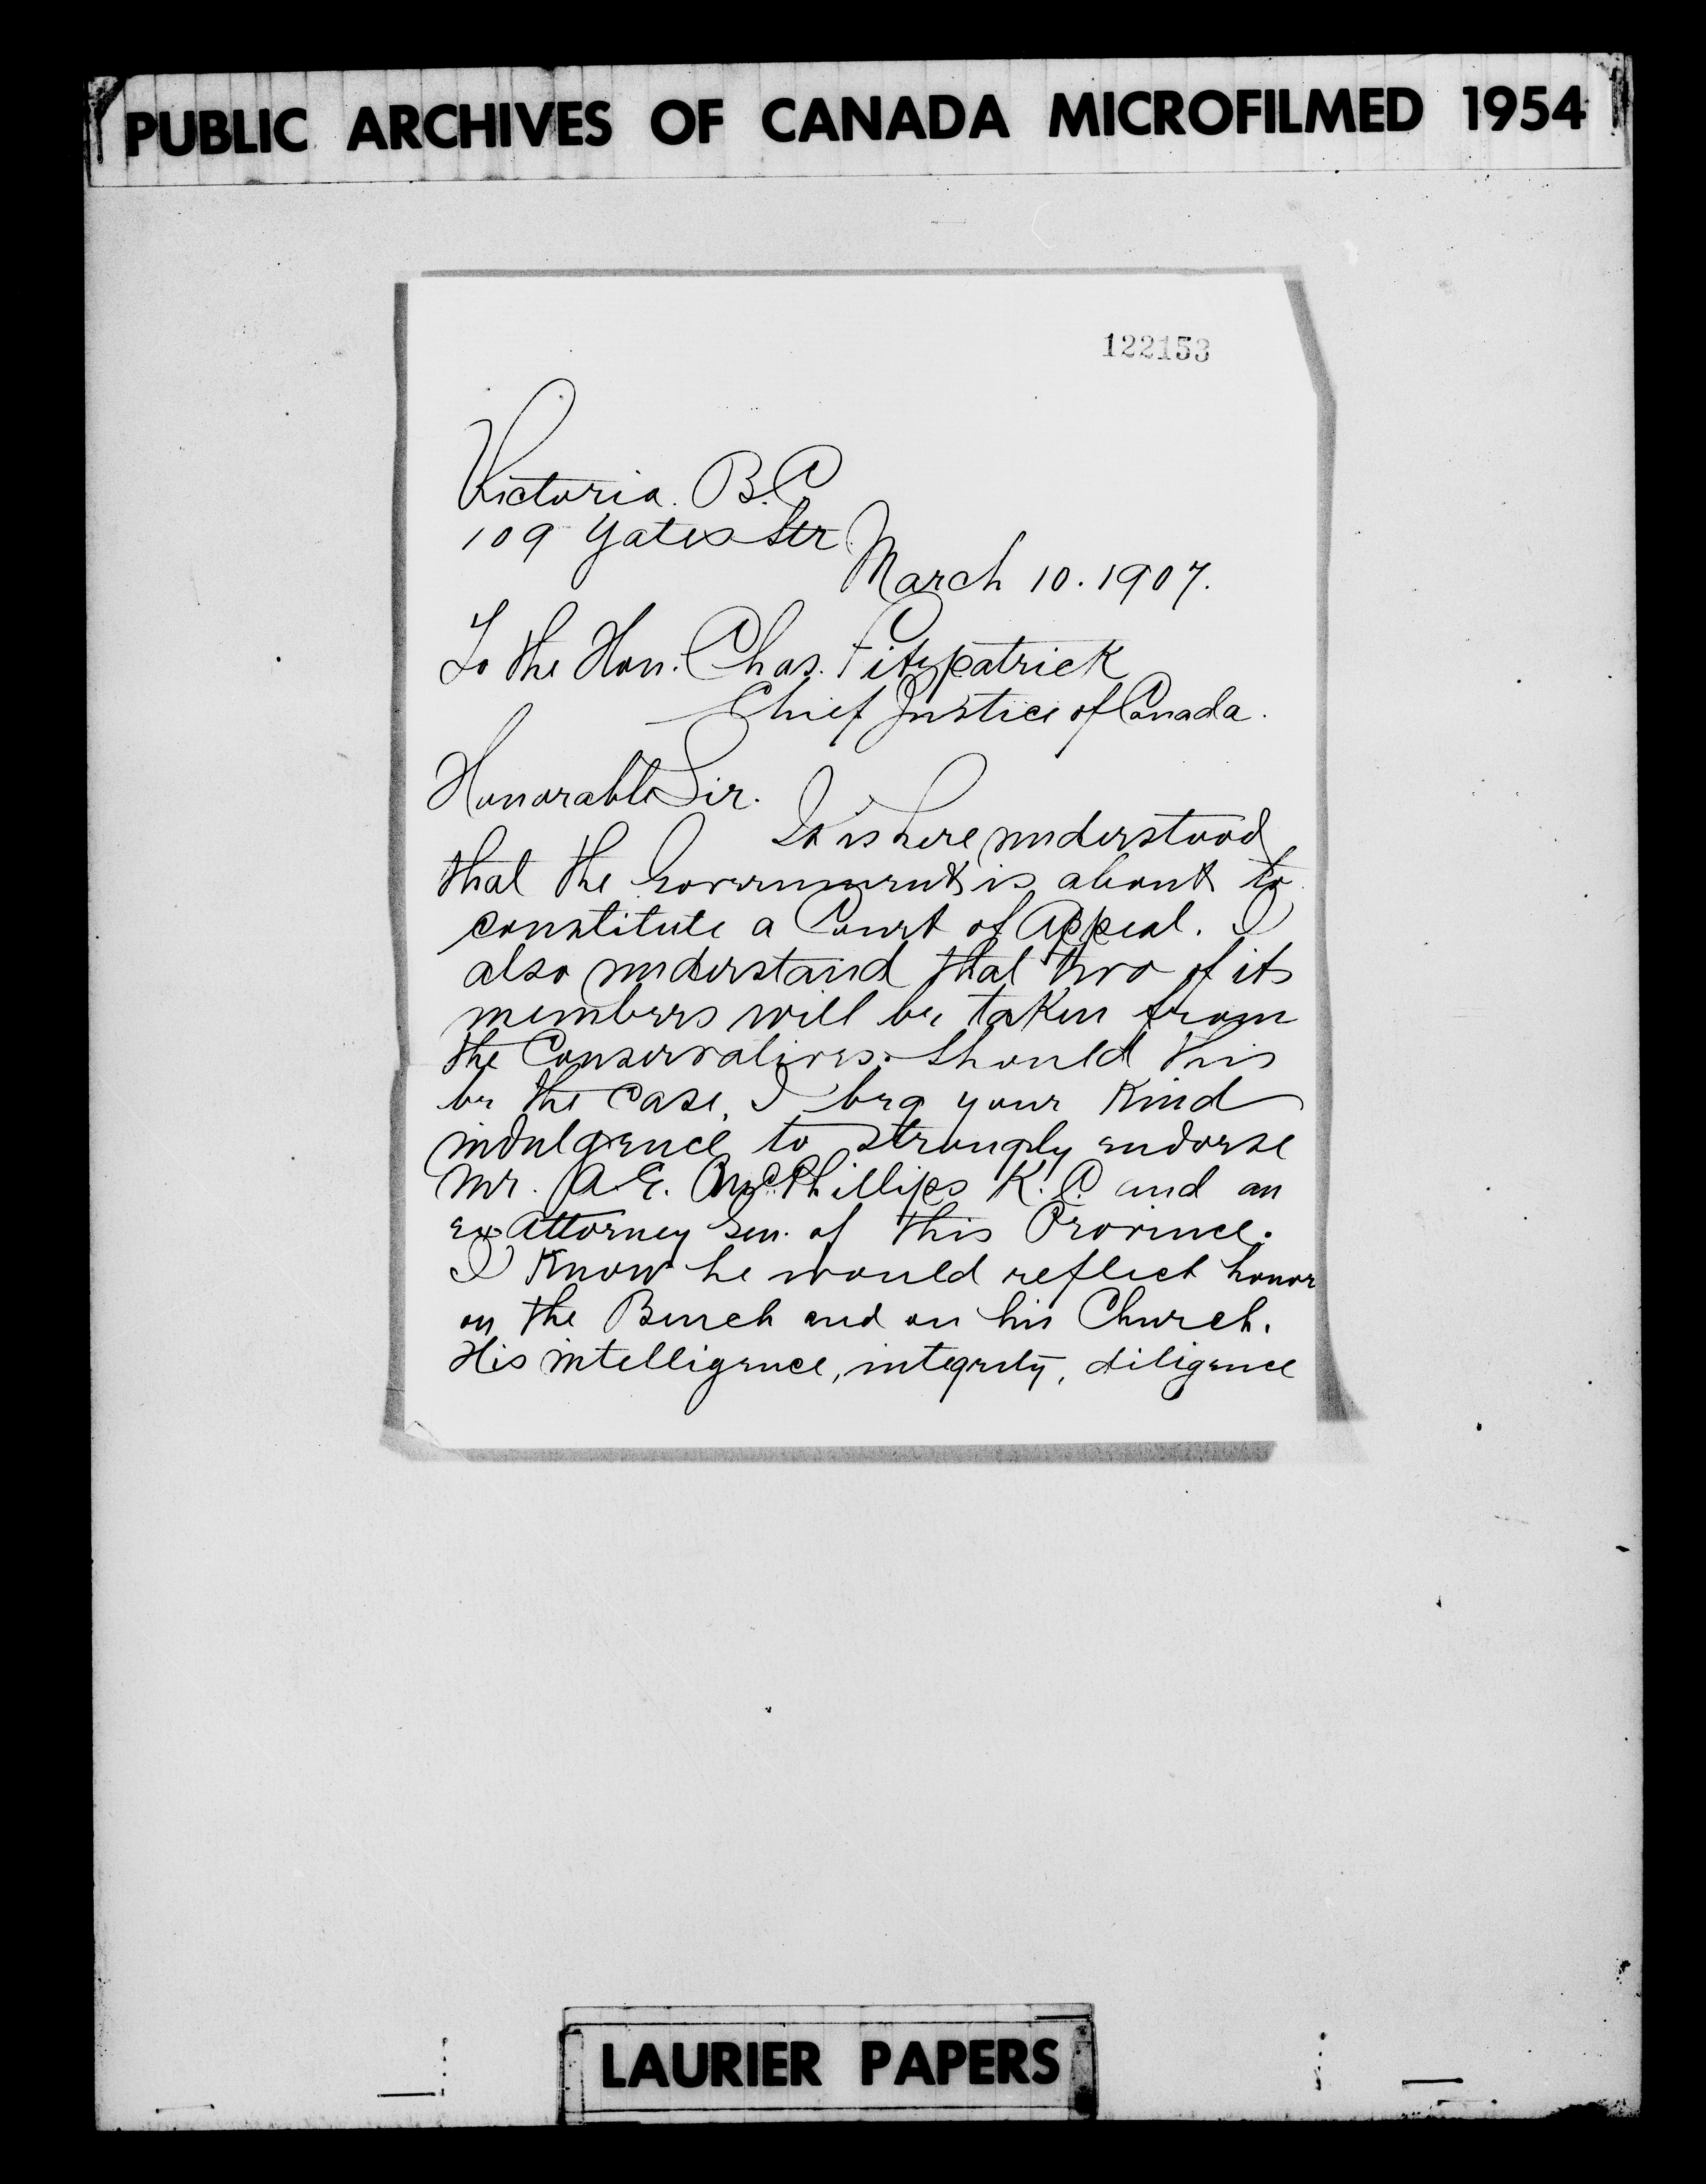 PUBLIC ARCHIVES OF CANADA MICROFILMED 1954
122153
Victoria. B.C
109 Yates Str.
March 10. 1907.
To the Hon. Chas. Fitzpatrick
Chief Justice of Canada.
Honorable Sir.
It is here understood
that the Government is about to
constitute a Court of Appeal. I
also understand that two of its
members will be taken from
the Conservatives. Should this
be the case, I beg your kind
indulgence to strongly endorse
Mr. A. E. McPhillips K. C. and an
ex Attorney Gen. of this Province.
I know he would reflect honor
on the Bench and on his Church.
His intelligence, integrity, diligence
LAURIER PAPERS